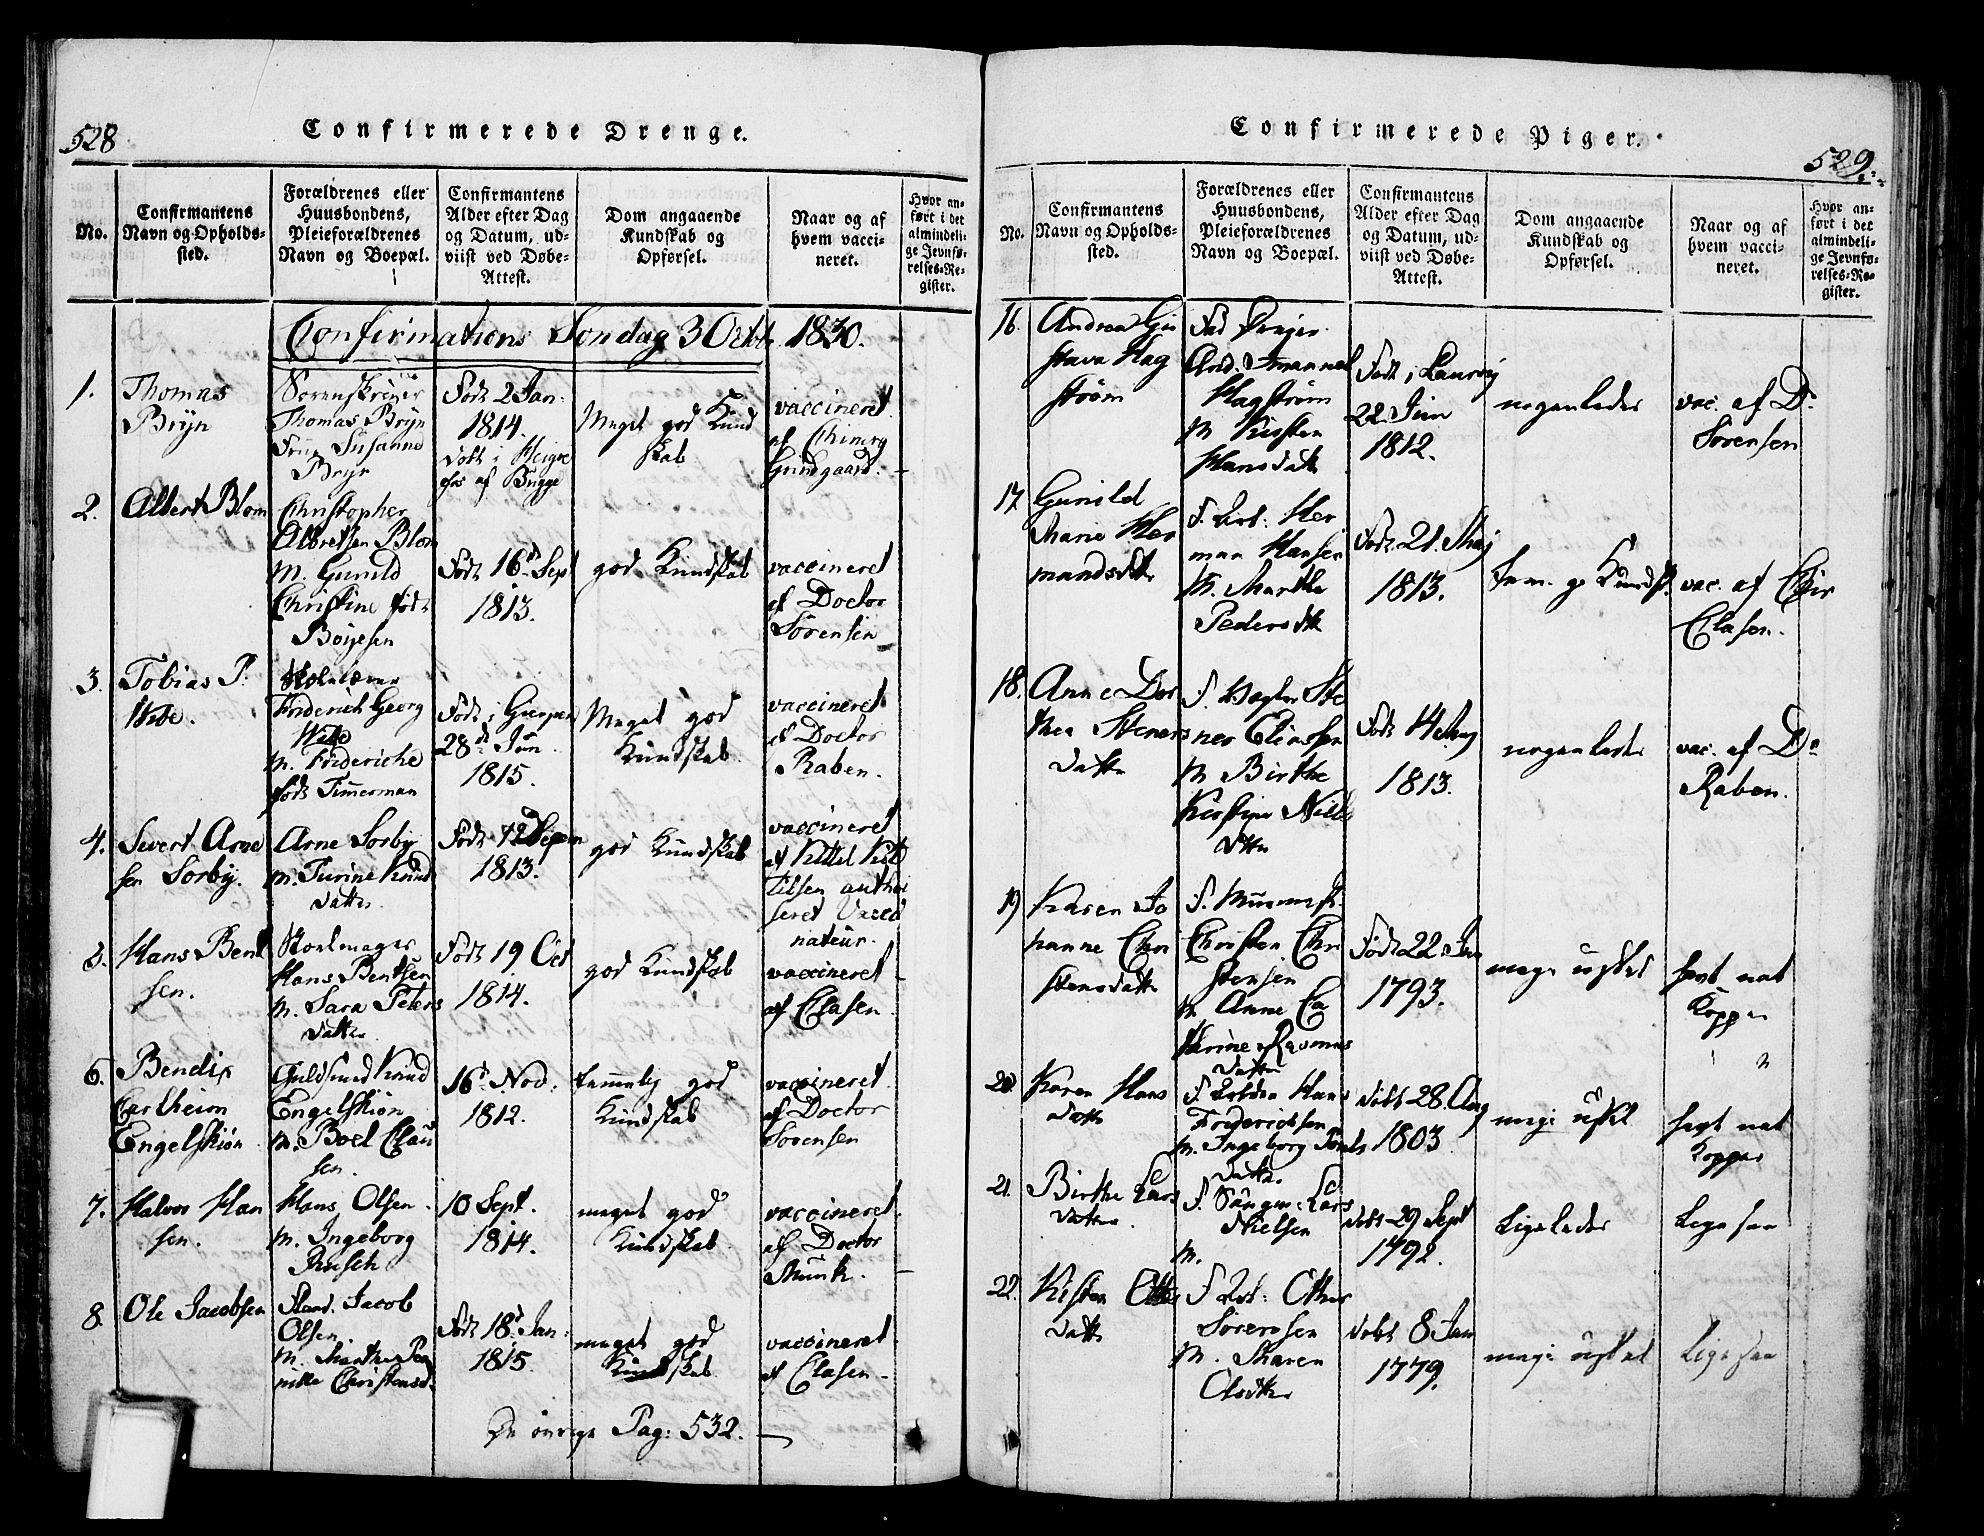 528
Confirmerede Drenge.
No.
Confirmantens
Navn og Opholds-
sted.
Forældrenes eller
Huusbondens,
Pleieforældrenes
Navn og Boepæl.
Confirmantens
Alder efter Dag
og Datum, ud-
viist ved Døbe-
Attest.
Dom angaaende
Kundskab og
Opførsel.
Naar og af
hvem vacci-
neret.
Hvor an-
ført i det
almindeli-
ge Jevnfø-
relses-Re-
gister.
Confirmations Søndag 3 Octb. 1830.
1.
Thomas
Bryn
Sorenskriver
Thomas Bryn
Frue Susanne
Bryn
Født 2 Jan.
1814.
af Bugge
Meget god Kund
skab
vaccineret
af Chirurg
Grundgaard.
2.
Albert Blom
Christopher
Albretsen Blom
M. Gunild
Christine født
Boyesen
Født 16d Sept
1813.
god Kundskab
vaccineret
af Doctor
Sørensen
3.
Tobias P.
Wibe.
Friderich Georg
Wibe
M. Frideriche
født Timerman
Født i Gjerpen
28d Jun.
1815.
Meget god
Kundskab.
vaccineret
af Doctor
Raben.
4.
Sivert Arne
sen Sorby.
Arne Sorby
M. Turine Knud
datter
Født 12 Decem
1813.
god Kundskab
vaccineret
af Kittel Kit
tilsen autho
riseret Vacci
nateur.
5.
Hans Bent
sen.
Stoelmager
Hans Bentsen
M. Sara Peters
datter
Født 19 Oct
1814.
god Kundskab
vaccineret
af Clasen.
6.
Bendix
Carlheim
Engelskiøn
Guldsmed Knud
Engelskiøn
M. Boel Clau
sen.
16d Nov.
1812.
temmelig god
Kundskab
vaccineret
af Doctor
Sørensen
7.
Halvor Han
sen.
Hans Olsen.
M. Ingeborg
Rusch
10 Sept.
1814.
meget god
Kundskab.
vaccineret
af Doctor
Munk.
8.
Ole Jacobsen
Jacob
Olsen.
M. Marthe Per
nille Christensd.
Født 18d Jan.
1815.
meget god
Kundskab
vaccineret
af Clasen
De øvrige Pag: 532.
Confirmerede Piger.
529.
No.
Confirmantens
Navn og Opholds-
sted.
Forældrenes eller
Huusbondens,
Pleieforældrenes
Navn og Boepæl.
Confirmantens
Alder efter Dag
og Datum, ud-
viist ved Døbe-
Attest.
Dom angaaende
Kundskab og
Opførsel.
Naar og af
hvem vacci-
neret.
Hvor an-
ført i det
almindeli-
ge Jevnfø-
relses-Re-
gister.
16.
Andrea Gu
stava Hag
strøm
And. Imanuel
Hagstrøm
M Kirsten
Hansdatt
Født i Laurvig
22. Juni
1812.
nogenledes
vac. af Dr
Sørensen
17.
Gunild
Marie Her
mandsdatt
F. Arb: Her
man Hansen
M. Marthe
Pedersdtt
Født 21. Maj
1813.
Tem. g Kundsk.
vac. af Chir
Clasen.
18.
Anne Dor
thea Steners
datter
Ste
ner Eliassen
M Birthe
Kirstine Niels
dtter
Født 14 Aug
1813.
nogenledes
vac. af Dr
Raben.
19
Karen Jo
hanne Chri
stensdatter
F. Muurmst.
Christen Chri
stensen
M Anne Ca
thrine Rasmus
datter
Født 22. Jan
1793.
havt nat
Kopper
20.
Karen Hans
datter
F. Arbder Hans
Friderichsen
M. Ingeborg
datter
28. Aug
1803
havt nat
Kopper
21.
Birthe Lars
datter
F. Lars
Nielsen
M.
29 Sept
1792.
Ligeledes
Ligesaa
22.
Kirsten Otters
datter
F Arb: Otter
Sørensen
M. Maren
Olsdtter
8 Jan
1779.
Ligesaa